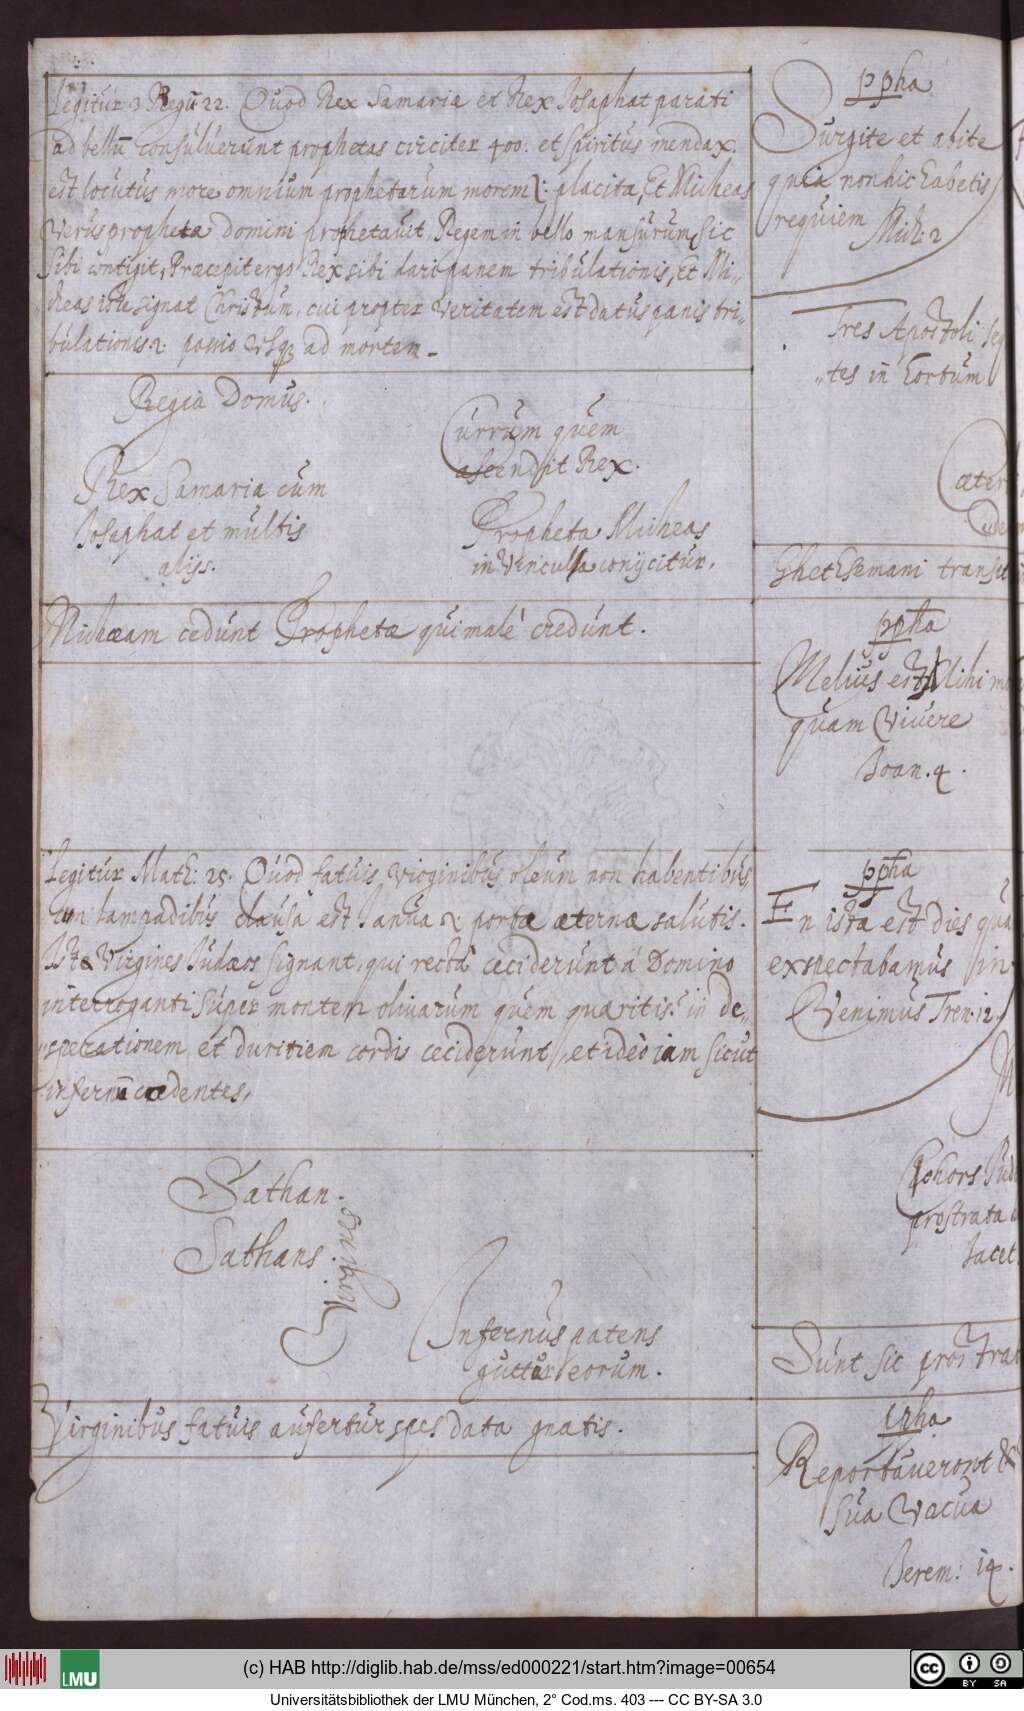 Legitur 3 Regū 22. Quod Rex Samariæ et Rex Josaphat parati
ad bellū consuluerunt prophetas circiter 400. et spiritus mendax
est locutus more omnium prophetarum morem placita, Et Micheas
Verus propheta domini prophetavit Regem in bello mansurum, Sic
sibi contigit, Præcepit ergo Rex sibi dari panem tribulationis, Et Mi„
cheas iste signat Christum, cui propter Veritatem est datus panis tri„
bulationis ad mortem
Regia Domus.
Rex Samaria cum
Josaphat et multis
alijs.
Currum quem
ascendit Rex.
Propheta Micheas
in Vincula conijcitur.
Michæam cedunt Prophetæ qui malè credunt.
Legitur Math: 25. Quod fatuis virginibus oleum non habentibus
lampadibus clausa est Janua porta æternæ salutis.
Virgines Judæos signant, qui recta ceciderunt á Domino
interroganti super montem olivarum quem quæritis? in de„
„sperationem et duritiem cordis ceciderunt, et ideo iam sicut
infernū cædentes,
Sathan.
Sathans.
Virgines
Infernus patens
guttur eorum.
Virginibus fatuis aufertur spes data gnatis.
ppha
Surgite et abite
quia non hic habetis
requiem
Mich: 2
Tres Apostoli
„tes in hortum
Ghethsemani
ppha
Melius est Mihi
quam Vivere
Joan. 4.
ppha
En ista est dies
expectabamus
Venimus Tren. 12.
Cohors
prostrata
Jacet
Sunt sic
ppha
Reportaverunt
sua Vacua
Jerem: 14.
(c) HAB http://diglib.hab.de/mss/ed000221/start.htm?image=00654
LMU
cc BY SA
Universitätsbibliothek der LMU München, 2° Cod.ms. 403 --- CC BY-SA 3.0